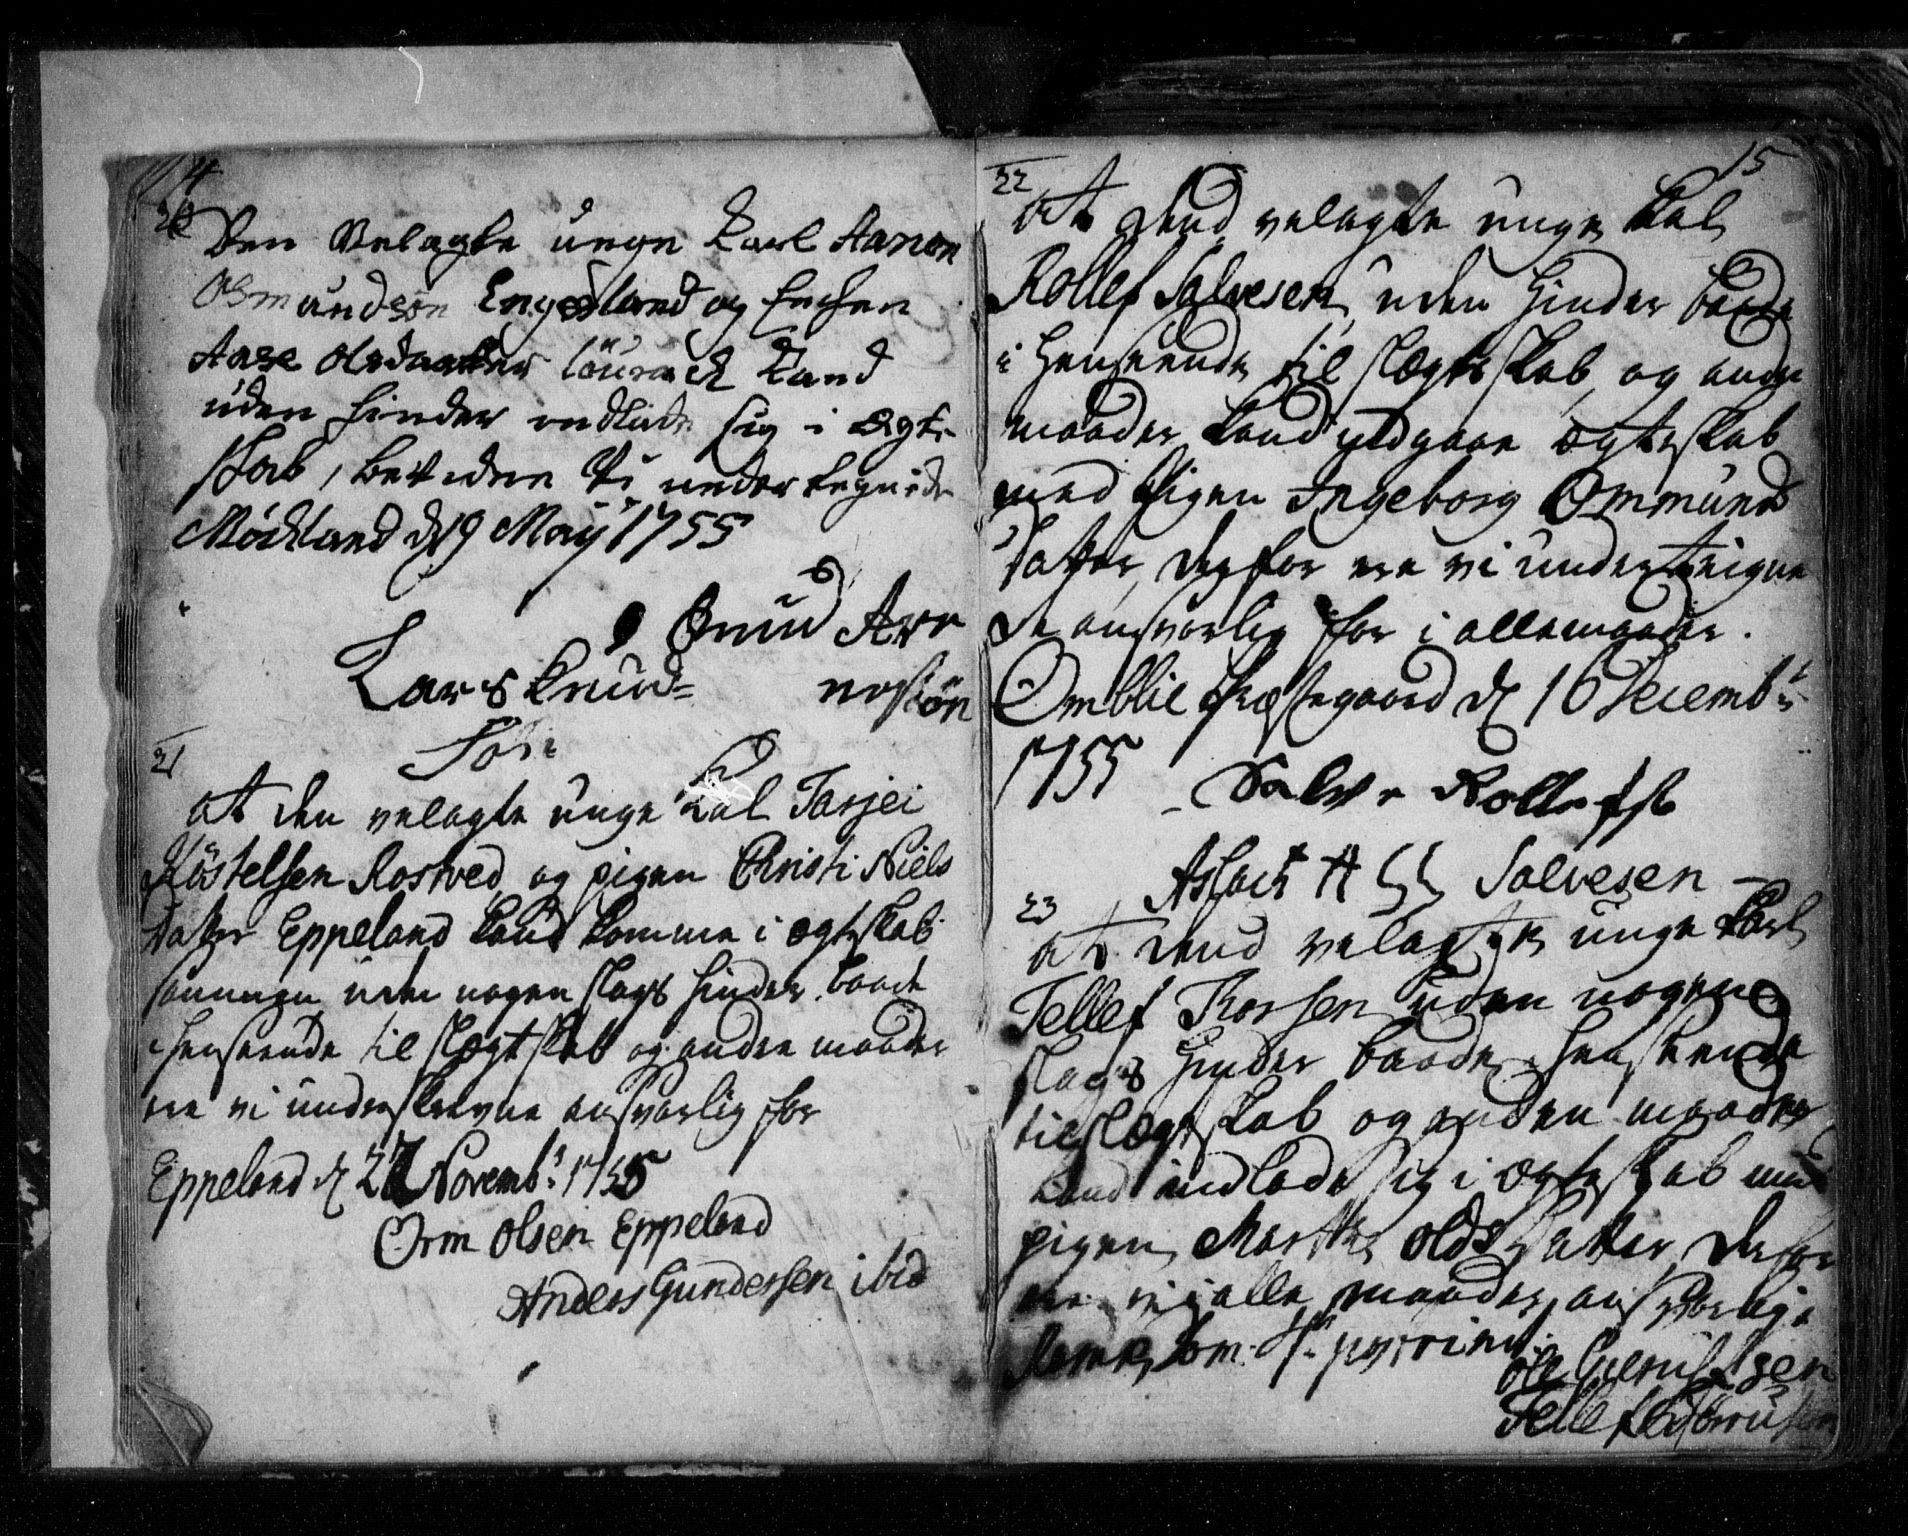 14
20
Den Velagte unge Karl Aanon
Osmundsøn Engesland og Enchen
Aase Olsdaatter kand
uden hinder indlade sig i Ægte
skab, bevidne Vi undertegnede
Møchland d 19 Maÿ 1755
Lars Knud= Knud Are
søn nessøn
21
At den velagte unge Kal Tarjei
Kiöstelsen Rostved og pigen Christi Niels
datter Eppeland kand komme i ægteskab
sammen uden nogen slags hinder baade
i henseende til slægtskab og anden maader
ere vi underskrevne ansvarlig for
Eppeland d 27 Novembr: 1755
Orm Olsen Eppeland
Anders Gundersen ibid
15
22
At dend velagte unge Kal
Rollef Salvesen uden Hinder baade
i henseende til slægtskab, og anden
maader kand indgaae ægteskab
med Pigen Ingeborg Ommunds
datter, derfor ere vi underteigne
de ansvarlig for i alle maader.
Omblie Præstegaard d 16 Decembr:
1755
Salve Rollefs
Aslach A S S Salvesen
23
At dend velagte unge Karl
Tellef Thorsen uden nogen
slags hinder baade i henseende
til slægtskab og anden maader
kand indlade sig i ægteskab med
pigen Marthe Olds datter, derfor
ere vi i alle maader ansvarlig.
Ole
Tellef